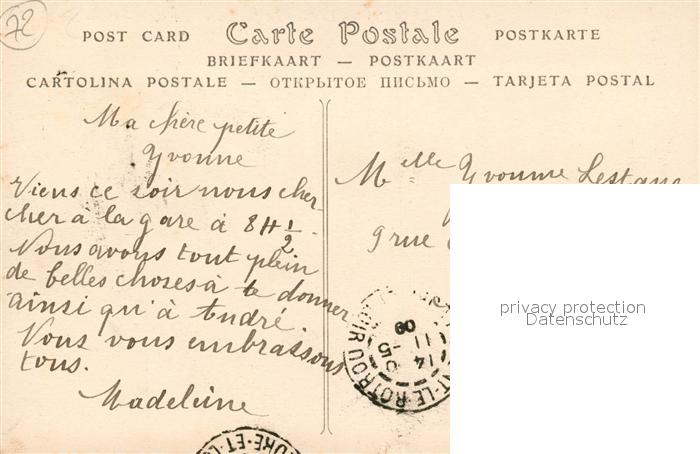 72
POST CARD Carte Postale POSTKARTE
BRIEFKAART — POSTKAART
CARTOLINA POSTALE — ОТКРЫТОЕ ПИСЬМО — TARJETA POSTAL
Ma chère petite
Yvonne
Viens ce soir nous cher-
cher à la gare à 8H 1/2.
Nous avons tout plein
de belles choses à te donner
ainsi qu'à André.
Nous vous embrassons
tous.
Madeleine
Melle Yvonne Lestang
9 rue
privacy protection
Datenschutz
NT-LE-ROTROU
LOIR
14
11 -5
09
URE-ET-L